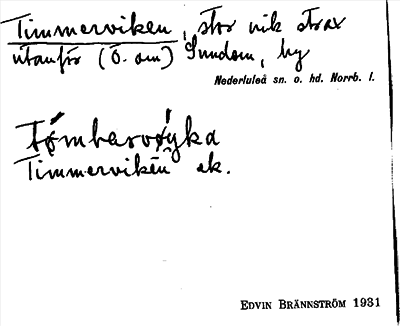 Timmerviken, stor vik strax
utanför (Ö. om) Sundom, by
Nederluleå sn. o. hd. Norrb. l.
Tǿmbervǿyka
Timmerviken ek.
EDVIN BRÄNNSTRÖM 1931